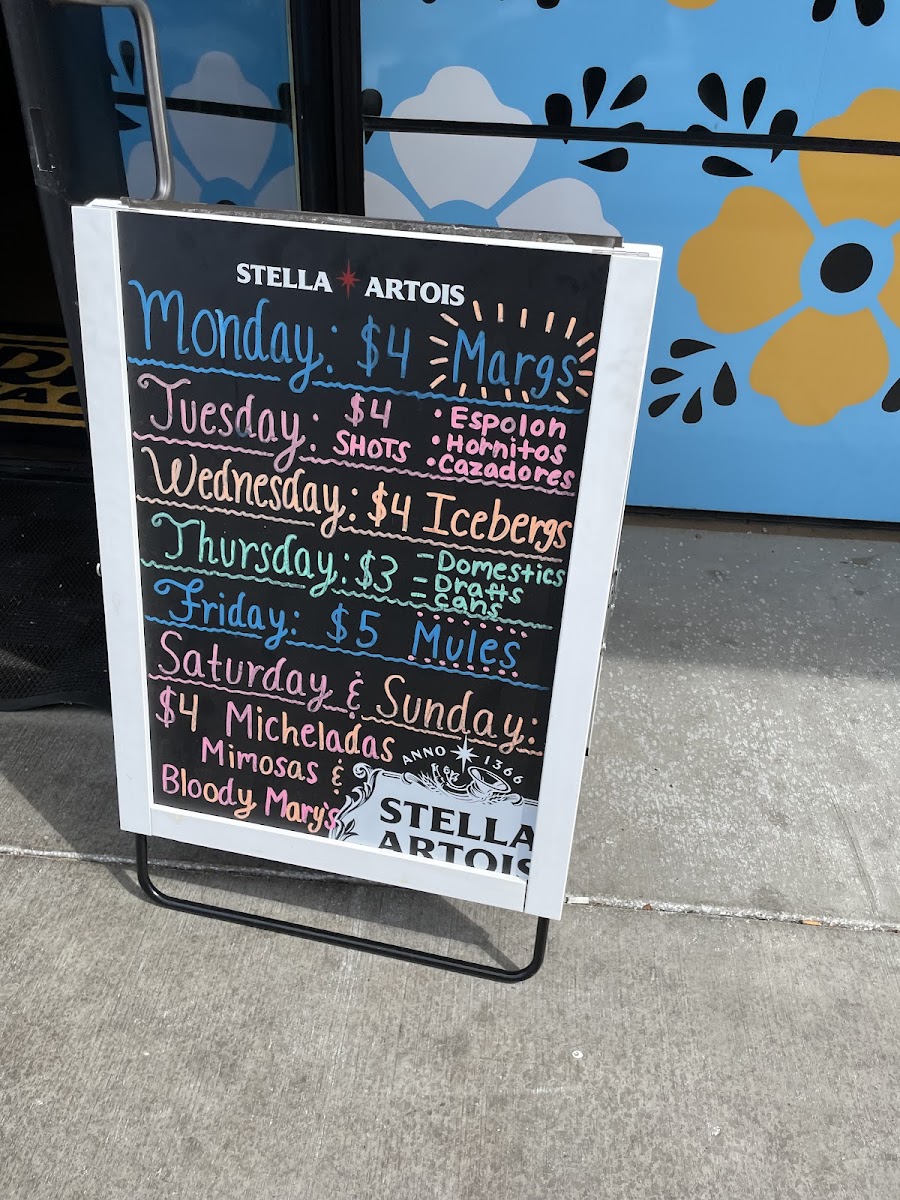 STELLA ARTOIS
Monday: $4 Margs
Tuesday: $4 SHOTS
• Espolon
• Hornitos
• Cazadores
Wednesday: $4 Icebergs
Thursday: $3
- Domestics
- Drafts
- Cans
Friday: $5 Mules
Saturday & Sunday:
$4 Micheladas
Mimosas &
Bloody Mary's
ANNO 1366
STELLA
ARTOIS